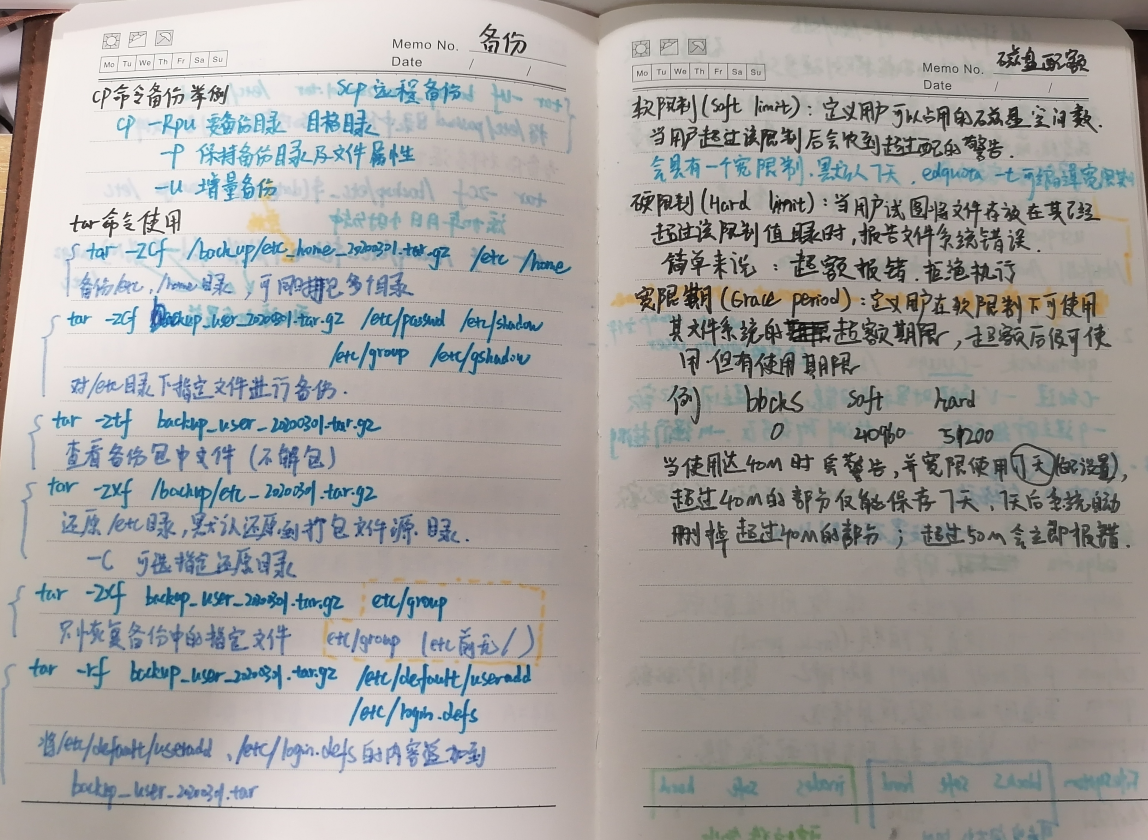 Memo No. 备份
Mo Tu We Th Fr Sa Su
Date / /
cp命令备份举例 scp 远程备份
cp -Rpu 要备份目录 目标目录
-p 保持备份目录及文件属性
-u 增量备份
tar命令使用
tar -zcf /backup/etc_home_20200301.tar.gz /etc /home
备份/etc、/home目录，可同时打包多个目录
tar -zcf backup_user_20200301.tar.gz /etc/passwd /etc/shadow
/etc/group /etc/gshadow
对/etc目录下指定文件进行备份.
tar -ztf backup_user_20200301.tar.gz
查看备份包中文件（不解包）
tar -zxf /backup/etc_20200301.tar.gz
还原/etc目录，默认还原到打包文件源目录.
-C 可选指定还原目录
tar -zxf backup_user_20200301.tar.gz etc/group
只恢复备份中的指定文件 etc/group（etc前无/）
tar -rf backup_user_20200301.tar.gz /etc/default/useradd
/etc/login.defs
将/etc/default/useradd、/etc/login.defs的内容追加到
backup_user_20200301.tar
Memo No. 磁盘配额
Mo Tu We Th Fr Sa Su
Date / /
软限制(soft limit)：定义用户可以占用的磁盘空间数.
当用户超过该限制后会收到超过配额警告.
会具有一个宽限制，默认7天，edquota -t 可编辑宽限制
硬限制(Hard limit)：当用户试图将文件存放在其已经
超过该限制值目录时，报告文件系统错误.
简单来说：超额报错.拒绝执行
宽限期(Grace period)：定义用户在软限制下可使用
其文件系统的超额期限，超额后仅可使
用.但有使用期限
例 blocks soft hard
0 40960 51200
当使用达40M时会警告，并宽限使用7天(可设置)，
超过40M的部分仅能保存7天，7天后系统自动
删掉超过40M的部分；超过50M会立即报错.